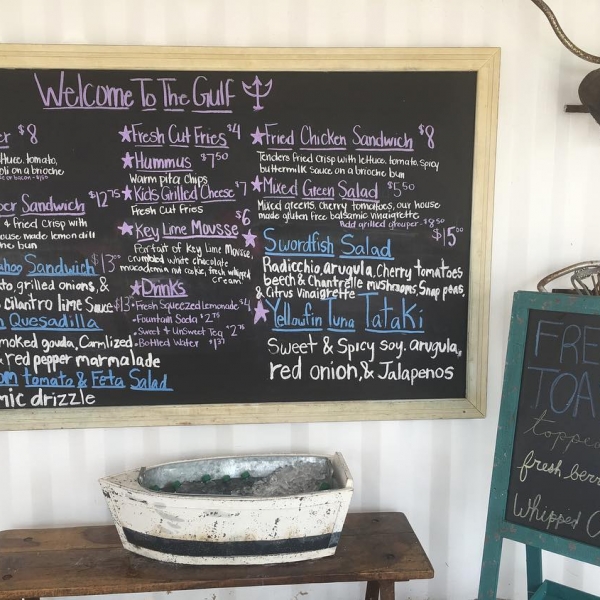 Welcome To The Gulf
er $8
ttuce, tomato,
oli on a brioche
ber Sandwich $12.75
& fried crisp with
house made lemon dill
he bun
ahoo Sandwich $13
to, grilled onions, &
cilantro lime Sauce
n Quesadilla $13
smoked gouda, Carmlized
red pepper marmalade
om tomato & Feta Salad
mic drizzle
Fresh Cut Fries $4
Hummus $7.50
Warm pita Chips
Kids Grilled Cheese $7
Fresh Cut Fries
Key Lime Mousse $6
Parfait of Key Lime Mousse,
crumbled white chocolate
macadamia nut cookie, fresh whipped
cream
Drinks
Fresh Squeezed Lemonade $4
Fountain Soda $2.75
Sweet & UnSweet Tea $2.75
Bottled Water
Fried Chicken Sandwich $8
Tenders Fried Crisp with lettuce, tomato, spicy
buttermilk sauce on a brioche bun
Mixed Green Salad $5.50
Mixed greens, cherry tomatoes, our house
made gluten free balsamic vinaigrette
Add grilled grouper $8.50
Swordfish Salad $15.00
Radicchio arugula, Cherry tomatoes
beech & Chantrelle mushrooms, Snap peas,
& Citrus Vinaigrette
Yellowfin Tuna Tataki
Sweet & Spicy soy, arugula,
red onion, & Jalapenos
FRE
TOA
toppe
fresh berr
Whipped C